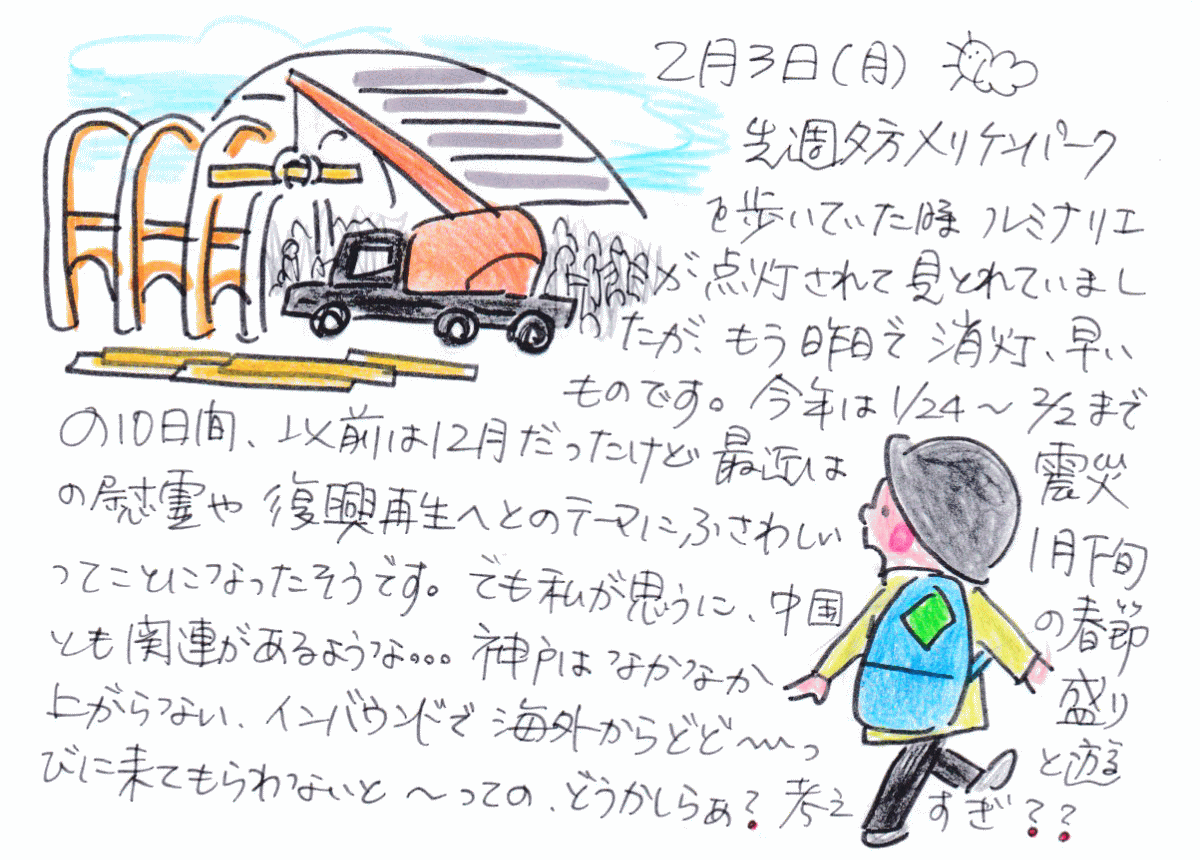 2月3日(月)
先週夕方メリケンパーク
を歩いていた時ルミナリエ
が点灯されて見とれていまし
たが、もう昨日で消灯、早い
ものです。今年は1/24～2/2まで
の10日間、以前は12月だったけど最近は震災
の慰霊や復興再生へとのテーマにふさわしい1月下旬
ってことになったそうです。でも私が思うに、中国の春節
とも関連があるような。。。神戸はなかなか盛り
上がらない、インバウンドで海外からどど〜っと遊
びに来てもらわないと～っての、どうかしらぁ?考えすぎ??